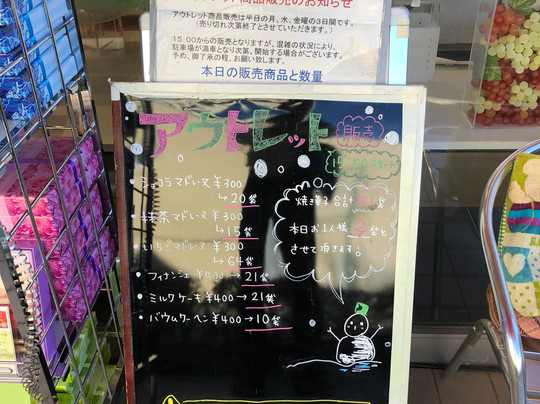 アウトレット商品販売は平日の月、水、金曜の3日間です。
(売り切れ次第終了とさせていただきます。)
15:00からの販売となりますが、混雑の状況により、
駐車場が満車となり次第、開始する場合がございます。
予め、御了承の程、お願い致します。
本日の販売商品と数量
アウトレット
販売
15:00スタート
・ショコラマドレーヌ ¥300
→20袋
・抹茶マドレーヌ ¥300
→15袋
・いちごマドレーヌ ¥300
→64袋
・フィナンシェ ¥400→21袋
・ミルクケーキ ¥400→21袋
・バウムクーヘン ¥400→10袋
焼菓子 合計151袋
本日お1人様 2袋と
させて頂きます。